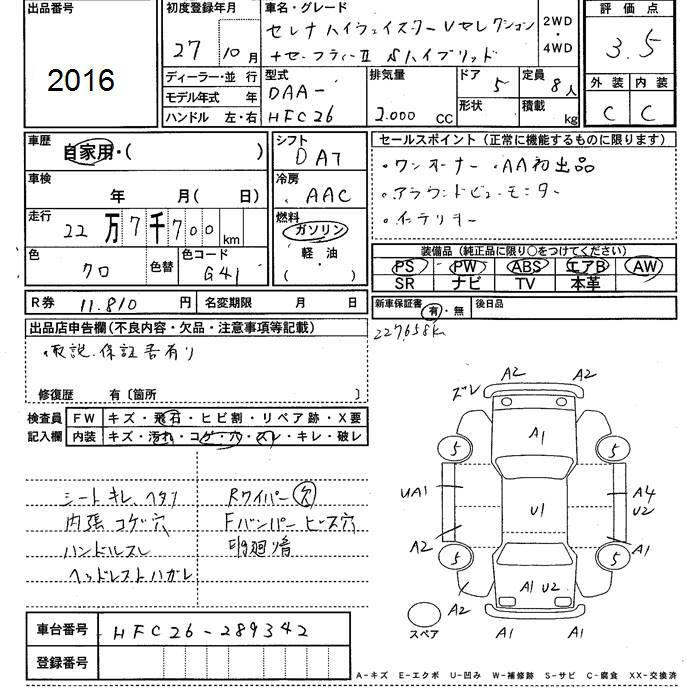 出品番号
2016
初度登録年月
27年 10月
車名・グレード
セレナ ハイウェイスター Vセレクション
+セーフティーII Sハイブリッド
2WD
・
4WD
評価点
3.5
外装 内装
C C
ディーラー・並行
モデル年式 年
ハンドル 左・右
型式
DAA-
HFC26
排気量
2.000 CC
ドア 5
形状
定員 8人
積載 kg
車歴
自家用・( )
車検
年 月( 日)
走行
22万7千700km
色
クロ
色替
色コード
G41
シフト
DAT
冷房
AAC
燃料
ガソリン
軽・油
( )
セールスポイント(正常に機能するものに限ります)
・ワンオーナー ・AA初出品
・アラウンドビューモニター
・インテリキー
装備品(純正品に限り○をつけてください)
PS PW ABS エアB AW
SR ナビ TV 本革
R券 11.810円
名変期限 月 日
新車保証書 有・無
後日品
227658km
出品店申告欄(不良内容・欠品・注意事項等記載)
・取説.保証書有り
修復歴 有〔箇所 〕
検査員
記入欄
FW キズ・飛石・ヒビ割・リペア跡・X要
内装 キズ・汚れ・コゲ・穴・スレ・キレ・破レ
シートキレ ヘタリ
内張コゲ穴
ハンドルスレ
ヘッドレストハガレ
Rワイパー欠
Fバンパービス穴
下廻り錆
ズレ A2 A2
A1
5 5
UA1 U1 A4
U2
A2 A1
5 5
A2 A1 U2
スペア A1 A1
車台番号 HFC26-289342
登録番号
A-キズ E-エクボ U-凹み W-補修跡 S-サビ C-腐食 XX-交換済